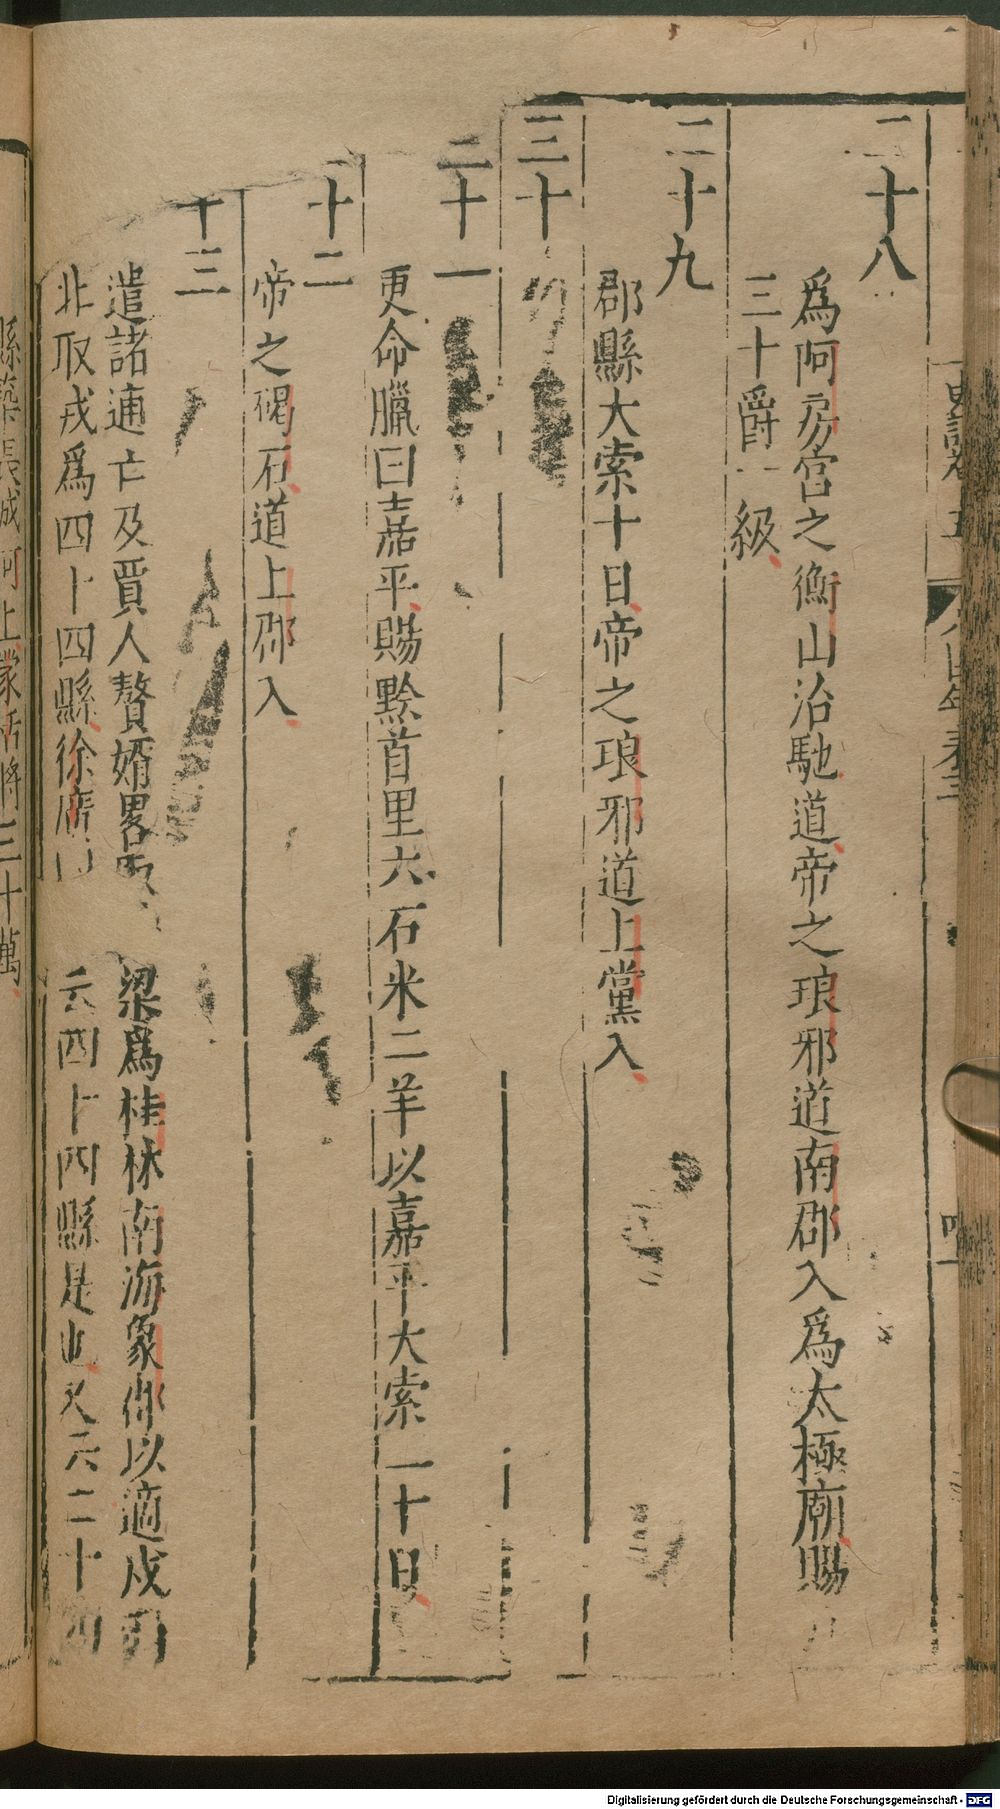 二十八
爲阿房宮之衡山治馳道帝之琅邪道南郡入爲太極廟賜
三十爵一級
二十九
郡縣大索十日帝之琅邪道上黨入
三十
三十一
更命臘曰嘉平賜黔首里六石米二羊以嘉平大索二十日
十二
帝之碣石道上郡入
十三
遣諸逋亡及賈人贅婿畧取 梁爲桂林南海象郡以適戍
北取戎爲四十四縣徐廣 云四十四縣是也又云二十四
縣築長城河上蒙恬將三十萬
Digitalisierung gefördert durch die Deutsche Forschungsgemeinschaft - DFG